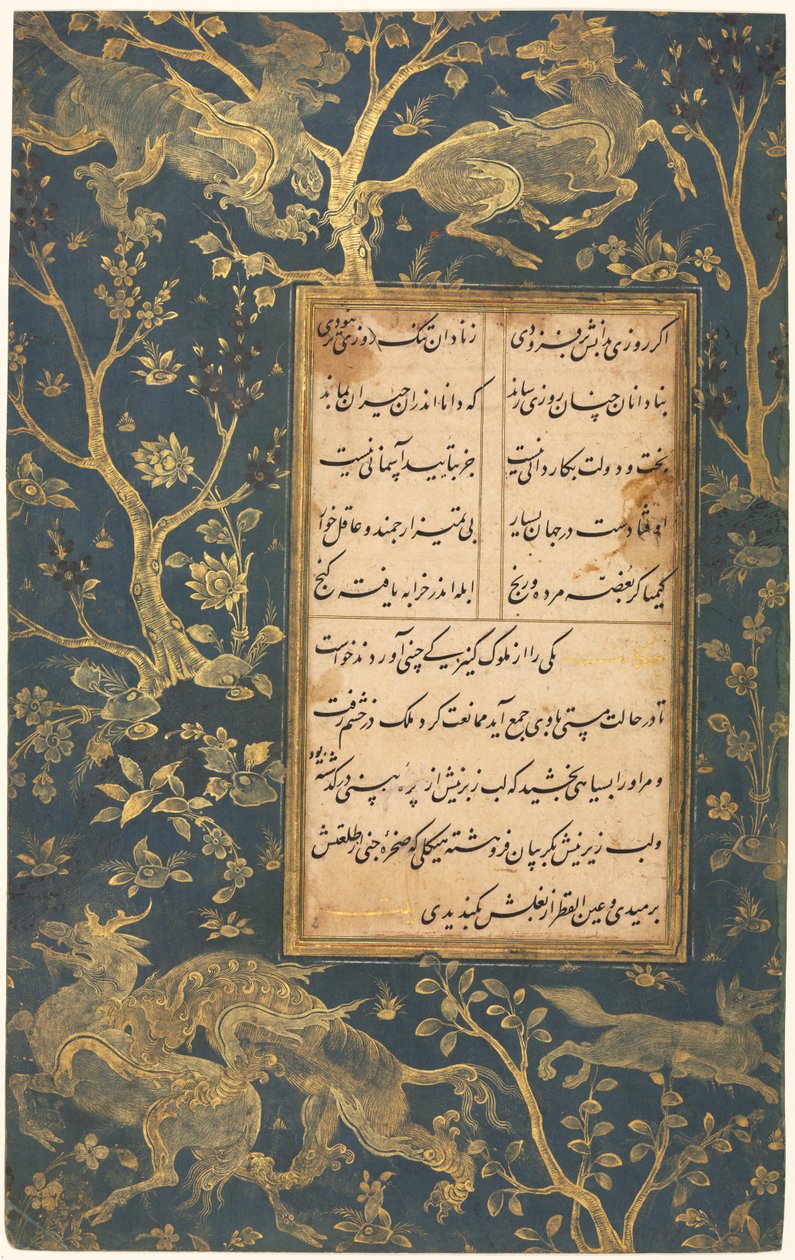 اکر روزی بدانش بر فزودی زنادان تنک روزی تر نبودی
بنادانان چنان روزی رساند که دانا اندران حیران بماند
بخت و دولت بکاردانی نیست جز بتایید آسمانی نیست
اوفتادست در جهان بسیار بی تمیز ارجمند و عاقل خوار
کیمیاکر بغصه مرده و رنج ابله اندر خرابه یافته کنج
حکایت یکی را از ملوک کنیزکی چینی آوردند خواست
تا در حالت مستی با وی جمع آید ممانعت کرد ملک در خشم رفت
و مر او را بسیاهی بخشید که لب زبرینش از پرهٔ بینی در کذشته بود
ولب زیرینش بکریبان فروهشته هیکلی که صخرهٔ جنی از طلعتش
برمیدی و عین القطر از بغلش بکندیدی